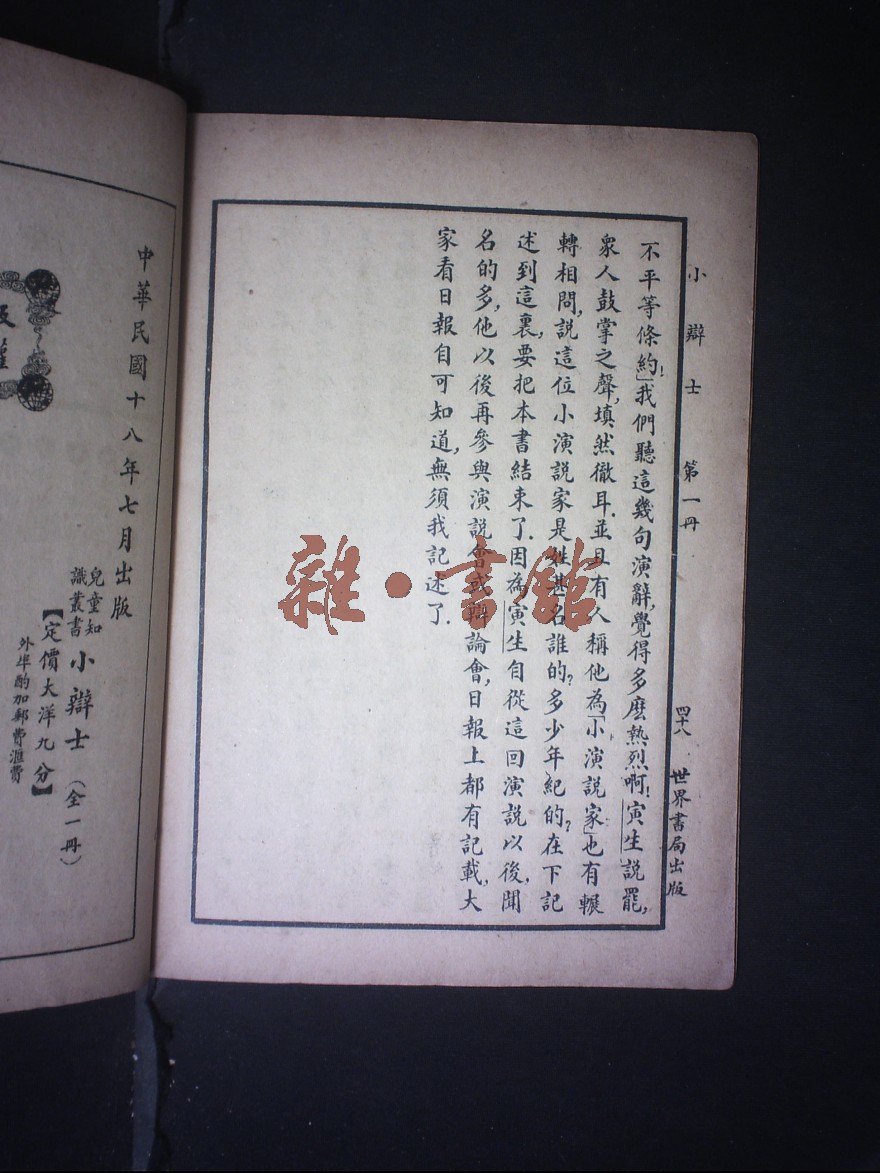 小辯士　第一冊　四十八　世界書局出版
不平等條約!」我們聽這幾句演辭,覺得多麽熱烈啊!寅生説罷,
衆人鼓掌之聲,填然徹耳.並且有人稱他為「小演説家」也有輾
轉相問,説這位小演説家是姓甚名誰的?多少年紀的?在下記
述到這裏,要把本書結束了.因為寅生自從這回演説以後,聞
名的多,他以後再參與演説會或辯論會,日報上都有記載,大
家看日報自可知道,無須我記述了.
中華民國十八年七月出版
兒童知
識叢書
小辯士(全一冊)
【定價大洋九分】
外埠酌加郵費滙費
版權
雜·書館